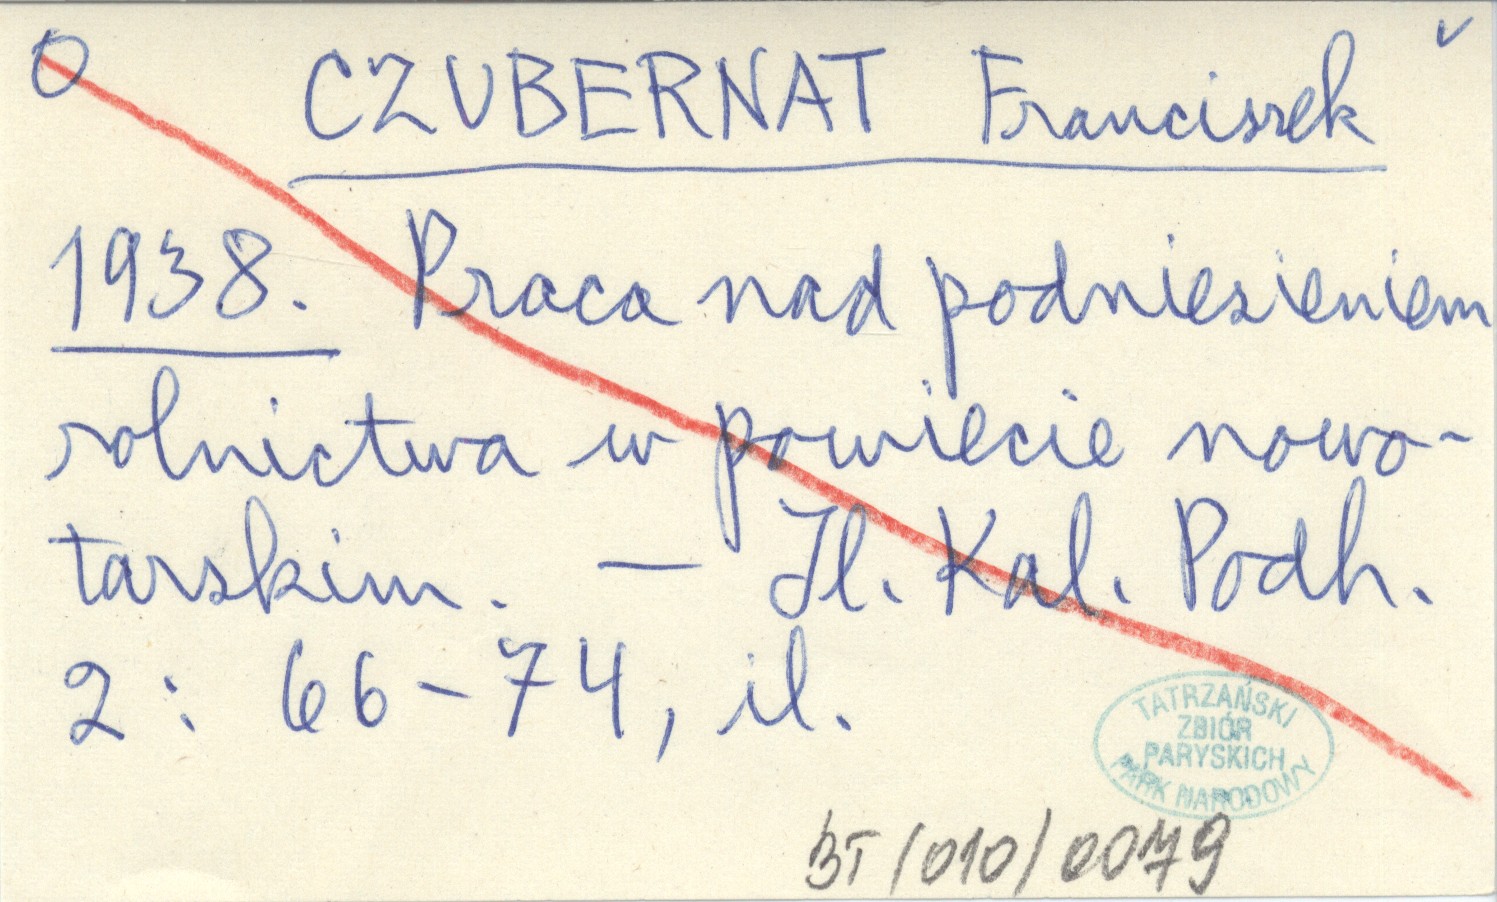 O CZUBERNAT Franciszek v
1938. Praca nad podniesieniem
rolnictwa w powiecie nowo-
tarskim. — Il. Kal. Podh.
2: 66-74, il.
TATRZAŃSKI
ZBIÓR
PARYSKICH
PARK NARODOWY
BT/010/0079